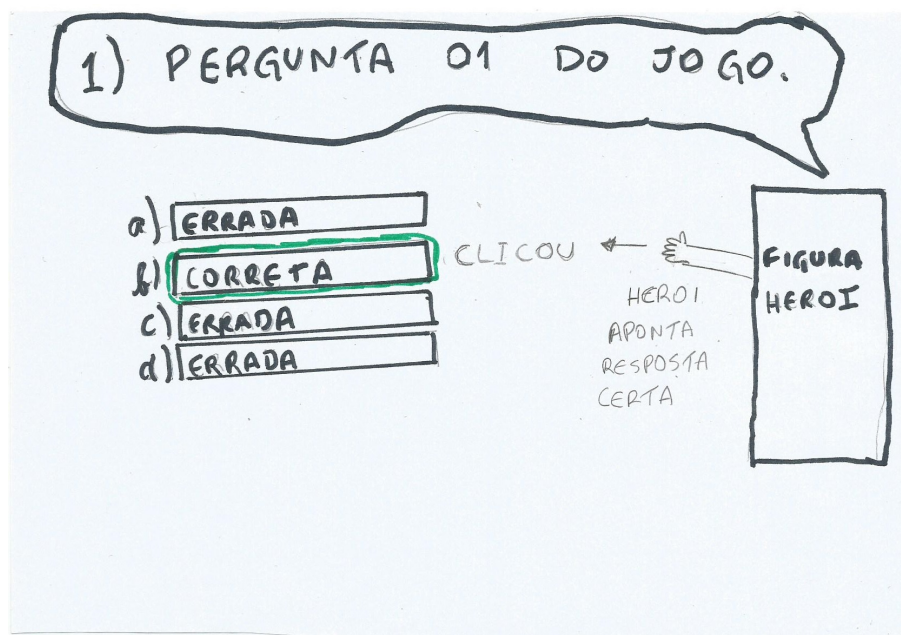 1) PERGUNTA 01 DO JOGO.
a) ERRADA
b) CORRETA
CLICOU
c) ERRADA
d) ERRADA
HEROI
APONTA
RESPOSTA
CERTA
FIGURA
HEROI